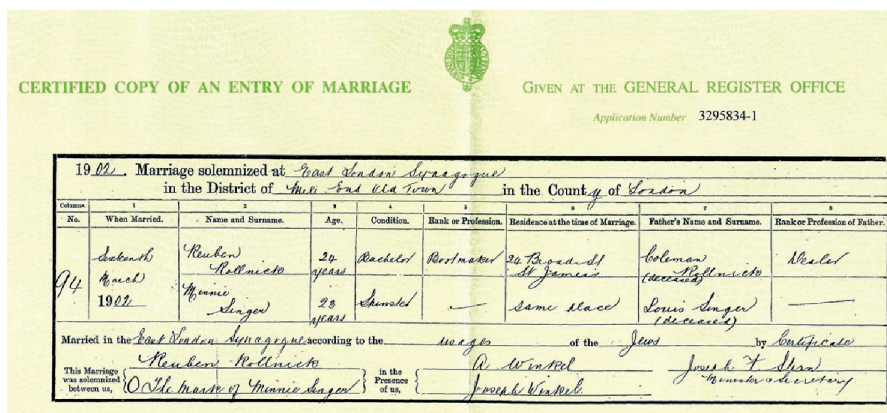 CERTIFIED COPY OF AN ENTRY OF MARRIAGE
GIVEN AT THE GENERAL REGISTER OFFICE
Application Number 3295834-1
1902. Marriage solemnized at East London Synagogue
in the District of Mile End Old Town in the County of London
Columns. 1 2 3 4 5 6 7 8
No. When Married. Name and Surname. Age. Condition. Rank or Profession. Residence at the time of Marriage. Father's Name and Surname. Rank or Profession of Father.
94 Sixteenth March 1902 Reuben Rollnick 24 years Bachelor Bootmaker 24 Broad St St James's Coleman Rollnick (deceased) Dealer
Minnie Singer 23 years Spinster — Same place Louis Singer (deceased) —
Married in the East London Synagogue according to the usages of the Jews by Certificate
This Marriage was solemnized between us, Reuben Rollnick
O The mark of Minnie Singer
in the Presence of us, A Winkel
Joseph Winkel
Joseph F Stern
Minister & Secretary